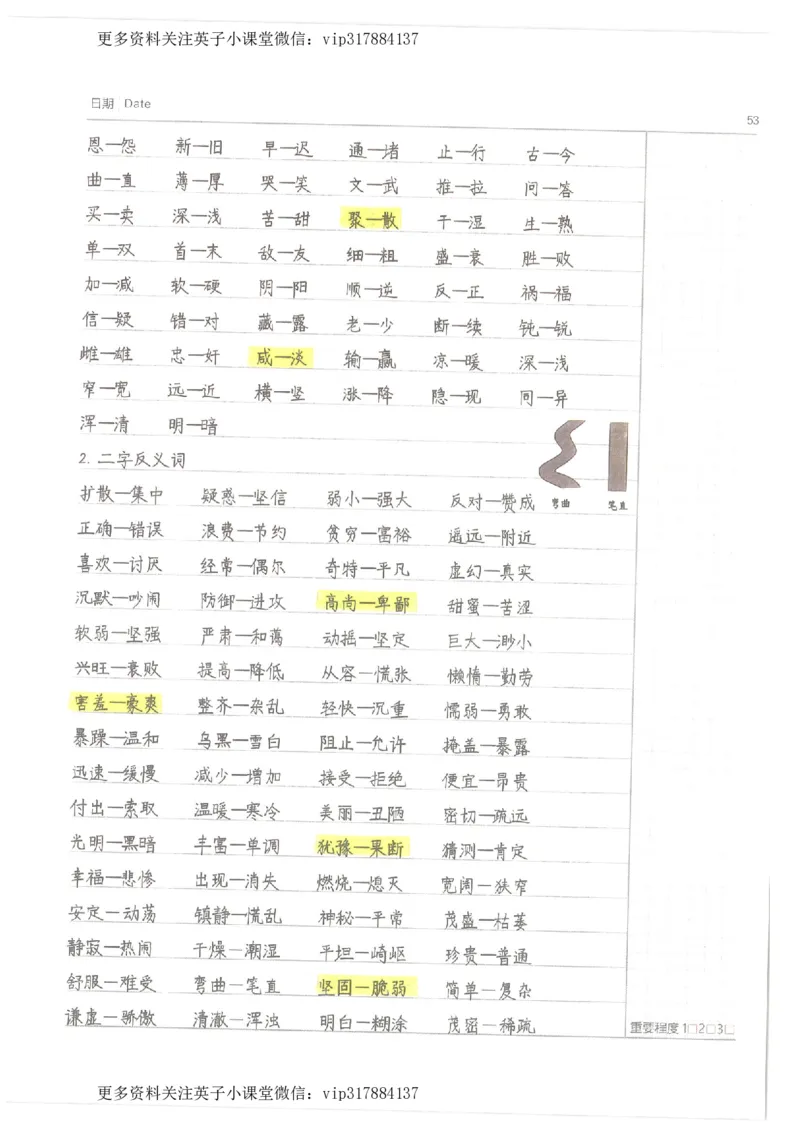 更多资料关注英子小课堂微信：vip317884137
日期 Date
53
恩—怨 新—旧 早—迟 通—堵 止—行 古—今
曲—直 薄—厚 哭—笑 文—武 推—拉 问—答
买—卖 深—浅 苦—甜 聚—散 干—湿 生—熟
单—双 首—末 敌—友 细—粗 盛—衰 胜—败
加—减 软—硬 阴—阳 顺—逆 反—正 祸—福
信—疑 错—对 藏—露 老—少 断—续 钝—锐
雌—雄 忠—奸 咸—淡 输—赢 凉—暖 深—浅
窄—宽 远—近 横—竖 涨—降 隐—现 同—异
浑—清 明—暗
2. 二字反义词
扩散—集中 疑惑—坚信 弱小—强大 反对—赞成 弯曲 笔直
正确—错误 浪费—节约 贫穷—富裕 遥远—附近
喜欢—讨厌 经常—偶尔 奇特—平凡 虚幻—真实
沉默—吵闹 防御—进攻 高尚—卑鄙 甜蜜—苦涩
软弱—坚强 严肃—和蔼 动摇—坚定 巨大—渺小
兴旺—衰败 提高—降低 从容—慌张 懒惰—勤劳
害羞—豪爽 整齐—杂乱 轻快—沉重 懦弱—勇敢
暴躁—温和 乌黑—雪白 阻止—允许 掩盖—暴露
迅速—缓慢 减少—增加 接受—拒绝 便宜—昂贵
付出—索取 温暖—寒冷 美丽—丑陋 密切—疏远
光明—黑暗 丰富—单调 犹豫—果断 猜测—肯定
幸福—悲惨 出现—消失 燃烧—熄灭 宽阔—狭窄
安定—动荡 镇静—慌乱 神秘—平常 茂盛—枯萎
静寂—热闹 干燥—潮湿 平坦—崎岖 珍贵—普通
舒服—难受 弯曲—笔直 坚固—脆弱 简单—复杂
谦虚—骄傲 清澈—浑浊 明白—糊涂 茂密—稀疏
重要程度 1□2□3□
更多资料关注英子小课堂微信：vip317884137